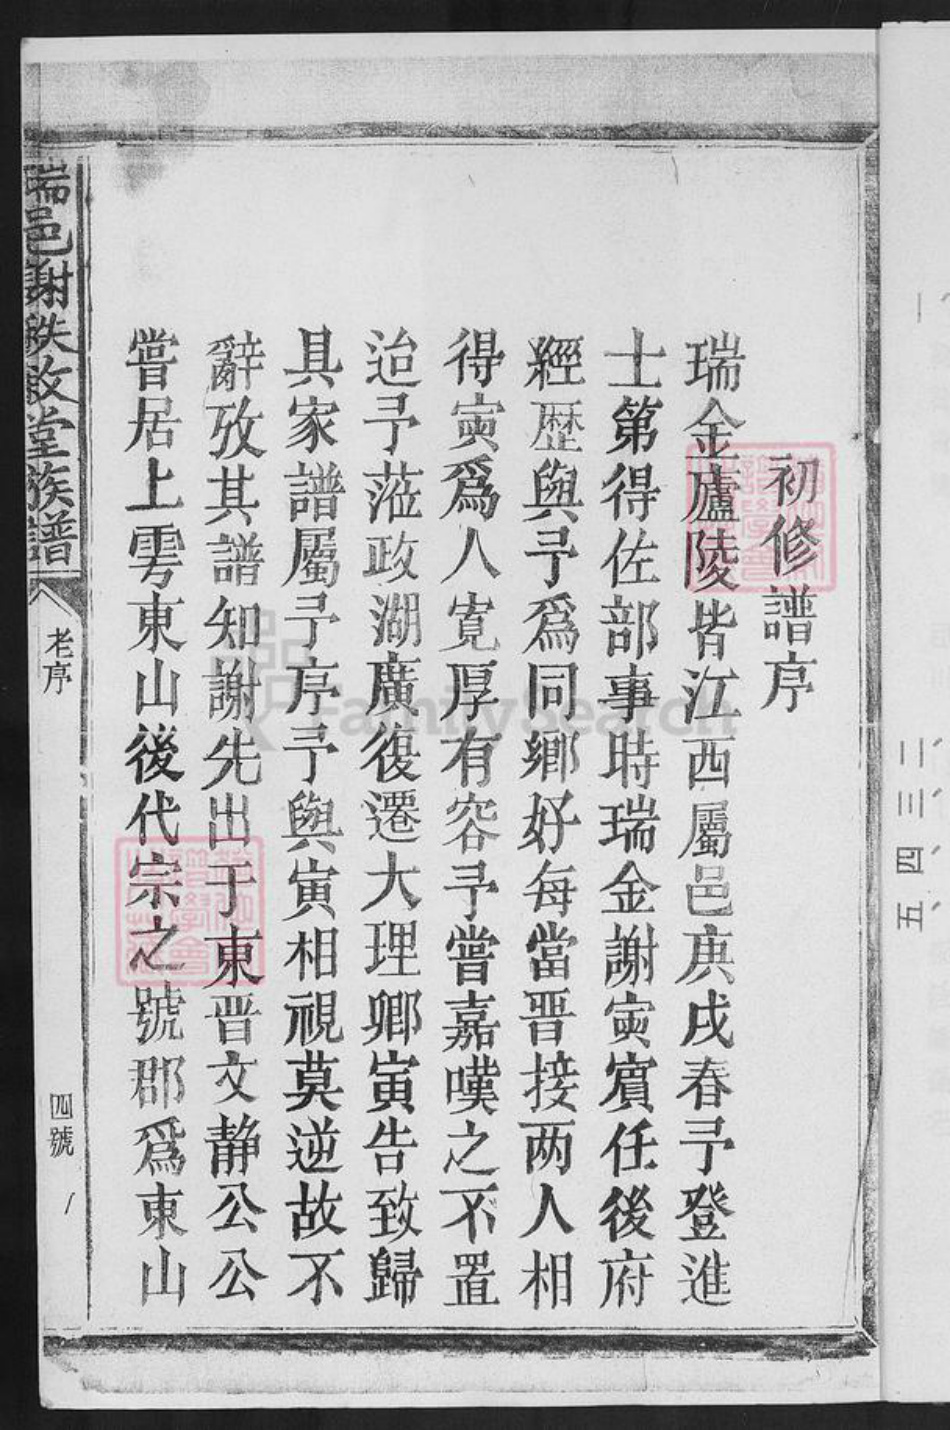 初修譜序
瑞金廬陵皆江西屬邑庚戌春予登進
士第得佐部事時瑞金謝寅賓任後府
經歷與予爲同鄉好每當晋接两人相
得寅爲人寬厚有容予嘗嘉嘆之不置
迨予蒞政湖廣復遷大理卿寅告致歸
具家譜屬予序予與寅相視莫逆故不
辭攷其譜知謝先出于東晋文靜公公
嘗居上雩東山後代宗之號郡爲東山
瑞邑謝秩敘堂族譜
老序
四號
FamilySearch
二三四五